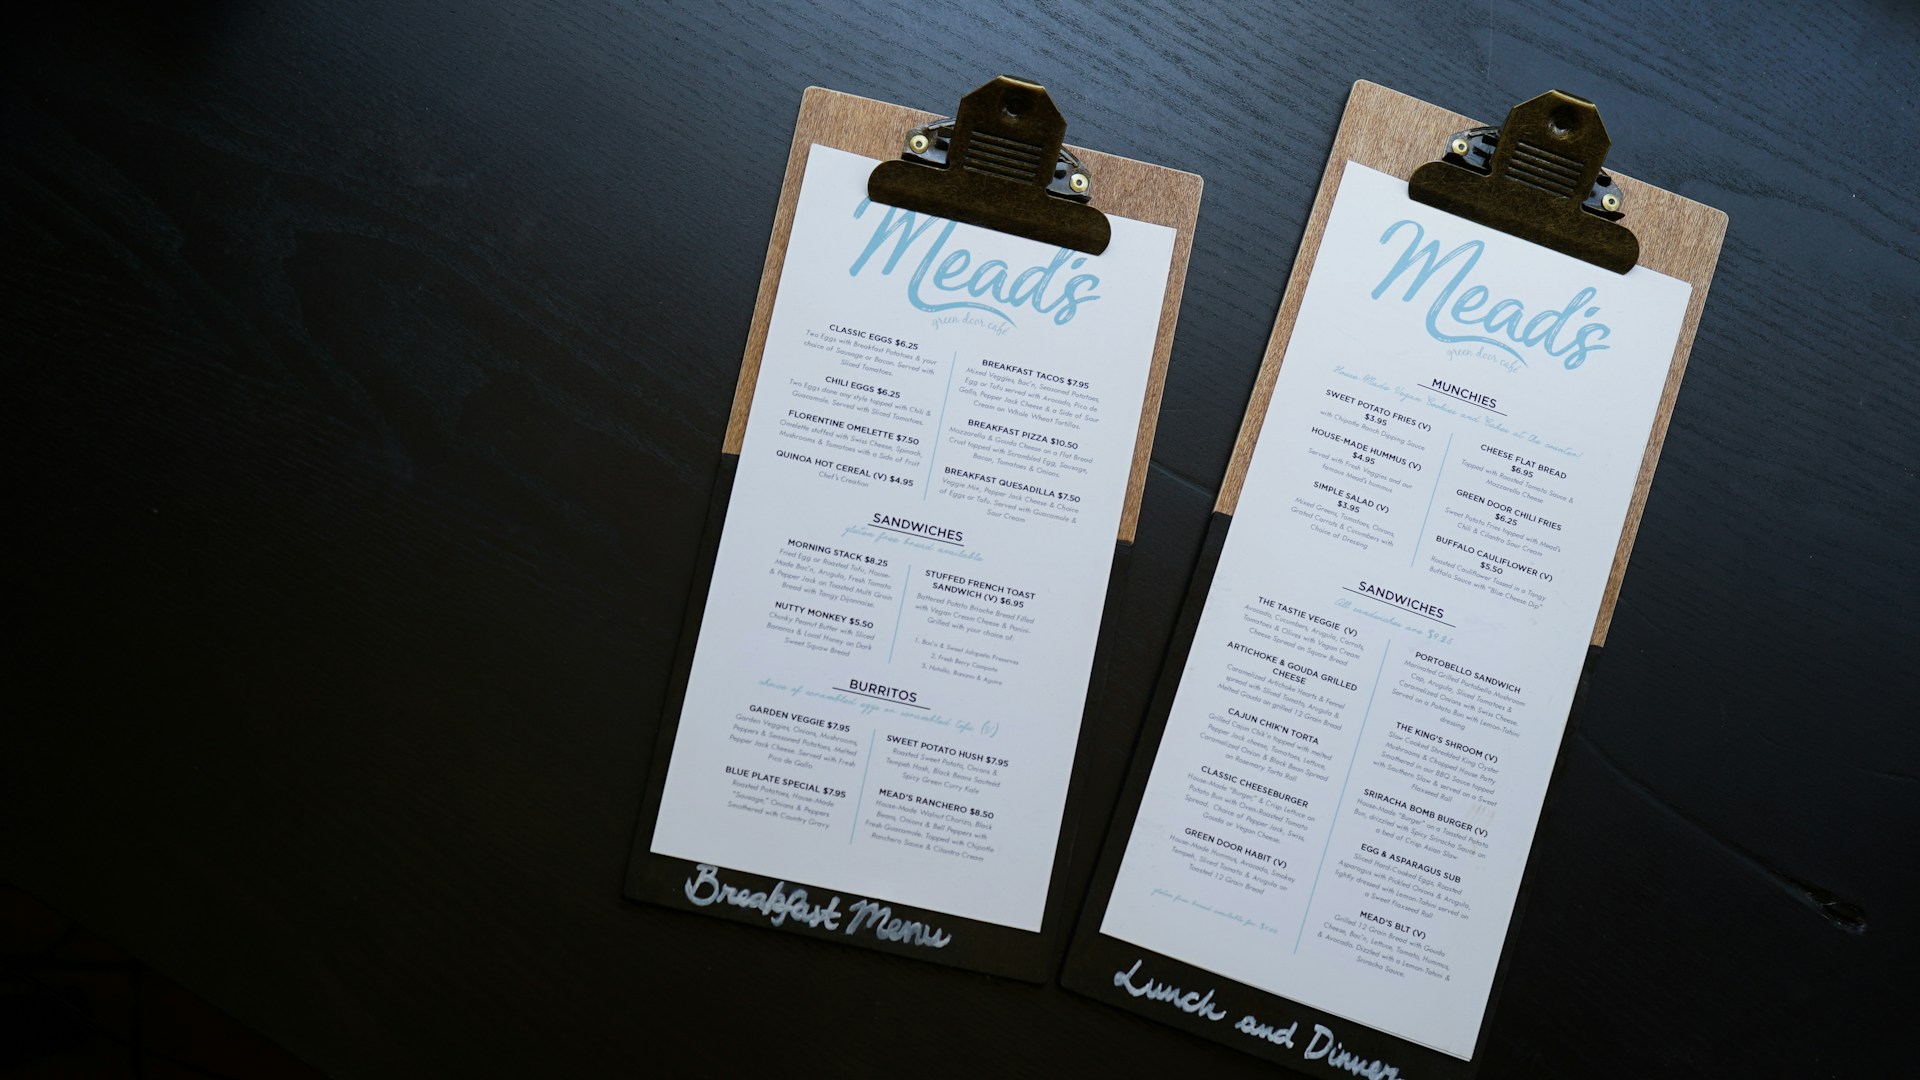 Mead's
green door café
CLASSIC EGGS $6.25
Two Eggs with Breakfast Potatoes & your
choice of Sausage or Bacon. Served with
Sliced Tomatoes.
CHILI EGGS $6.25
Two Eggs done any style topped with Chili &
Guacamole, Served with Sliced Tomatoes.
FLORENTINE OMELETTE $7.50
Omelette stuffed with Swiss Cheese, Spinach,
Mushrooms & Tomatoes with a Side of Fruit
QUINOA HOT CEREAL (V) $4.95
Chef's Creation
BREAKFAST TACOS $7.95
Mixed Veggies, Bac'n, Seasoned Potatoes,
Egg or Tofu served with Avocado, Pico de
Gallo, Pepper Jack Cheese & a Side of Sour
Cream on Whole Wheat Tortillas.
BREAKFAST PIZZA $10.50
Mozzarella & Gouda Cheese on a Flat Bread
Crust topped with Scrambled Egg, Sausage,
Bacon, Tomatoes & Onions
BREAKFAST QUESADILLA $7.50
Veggie Mix, Pepper Jack Cheese & Choice
of Eggs or Tofu. Served with Guacamole &
Sour Cream
SANDWICHES
gluten free bread available
MORNING STACK $8.25
Fried Egg or Roasted Tofu, House-
Made Bac'n, Arugula, Fresh Tomato
& Pepper Jack on Toasted Multi Grain
Bread with Tangy Dijonnaise.
NUTTY MONKEY $5.50
Chunky Peanut Butter with Sliced
Bananas & Local Honey on Dark
Sweet Squaw Bread
STUFFED FRENCH TOAST
SANDWICH (V) $6.95
Battered Potato Brioche Bread Filled
with Vegan Cream Cheese & Panini-
Grilled with your choice of:
1. Bac'n & Sweet Jalapeño Preserves
2. Fresh Berry Compote
3. Nutella, Banana & Agave
BURRITOS
choice of scrambled eggs or scrambled tofu (v)
GARDEN VEGGIE $7.95
Garden Veggies, Onions, Mushrooms,
Peppers & Seasoned Potatoes, Melted
Pepper Jack Cheese. Served with Fresh
Pico de Gallo
BLUE PLATE SPECIAL $7.95
Roasted Potatoes, House-Made
"Sausage," Onions & Peppers
Smothered with Country Gravy
SWEET POTATO HUSH $7.95
Roasted Sweet Potato, Onions &
Tempeh Hash, Black Beans Sautéed
Spicy Green Curry Kale
MEAD'S RANCHERO $8.50
House-Made Walnut Chorizo, Black
Beans, Onions & Bell Peppers with
Fresh Guacamole, Topped with Chipotle
Ranchero Sauce & Cilantro Cream
Breakfast Menu
Mead's
green door café
MUNCHIES
House Made Vegan Cookies and Cakes at the counter!
SWEET POTATO FRIES (V)
$3.95
with Chipotle Ranch Dipping Sauce
HOUSE-MADE HUMMUS (V)
$4.95
Served with Fresh Veggies and our
famous Mead's hummus
SIMPLE SALAD (V)
$3.95
Mixed Greens, Tomatoes, Onions,
Grated Carrots & Cucumbers with
Choice of Dressing
CHEESE FLAT BREAD
$6.95
Topped with Roasted Tomato Sauce &
Mozzarella Cheese
GREEN DOOR CHILI FRIES
$6.25
Sweet Potato Fries topped with Mead's
Chili & Cilantro Sour Cream
BUFFALO CAULIFLOWER (V)
$5.50
Roasted Cauliflower Tossed in a Tangy
Buffalo Sauce with "Blue Cheese Dip"
SANDWICHES
All sandwiches are $8.25
THE TASTIE VEGGIE (V)
Avocado, Cucumbers, Arugula, Carrots,
Tomatoes & Olives with Vegan Cream
Cheese Spread on Squaw Bread
ARTICHOKE & GOUDA GRILLED
CHEESE
Caramelized Artichoke Hearts & Fennel
spread with Sliced Tomato, Arugula &
Melted Gouda on grilled 12 Grain Bread
CAJUN CHIK'N TORTA
Grilled Cajun Chik'n topped with melted
Pepper Jack cheese, Tomatoes, Lettuce,
Caramelized Onion & Black Bean Spread
on Rosemary Torta Roll
CLASSIC CHEESEBURGER
House-Made "Burger," & Crisp Lettuce on
Potato Bun with Oven-Roasted Tomato
Spread. Choice of Pepper Jack, Swiss,
Gouda or Vegan Cheese.
GREEN DOOR HABIT (V)
House-Made Hummus, Avocado, Smokey
Tempeh, Sliced Tomato & Arugula on
Toasted 12 Grain Bread
gluten free bread available for
PORTOBELLO SANDWICH
Marinated Grilled Portobello Mushroom
Cap, Arugula, Sliced Tomatoes &
Caramelized Onions with Swiss Cheese.
Served on a Potato Bun with Lemon-Tahini
dressing
THE KING'S SHROOM (V)
Slow Cooked Shredded King Oyster
Mushrooms & Chopped House Patty
Smothered in our BBQ Sauce topped
with Southern Slaw & served on a Sweet
Flaxseed Roll
SRIRACHA BOMB BURGER (V)
House-Made "Burger" on a Toasted Potato
Bun, drizzled with Spicy Sriracha Sauce on
a bed of Crisp Asian Slaw
EGG & ASPARAGUS SUB
Sliced Hard-Cooked Eggs, Roasted
Asparagus with Pickled Onions & Arugula,
lightly dressed with Lemon-Tahini served on
a Sweet Flaxseed Roll
MEAD'S BLT (V)
Grilled 12 Grain Bread with Gouda
Cheese, Bac'n, Lettuce, Tomato, Hummus,
& Avocado, Dizzled with a Lemon-Tahini &
Sriracha Sauce.
Lunch and Dinner